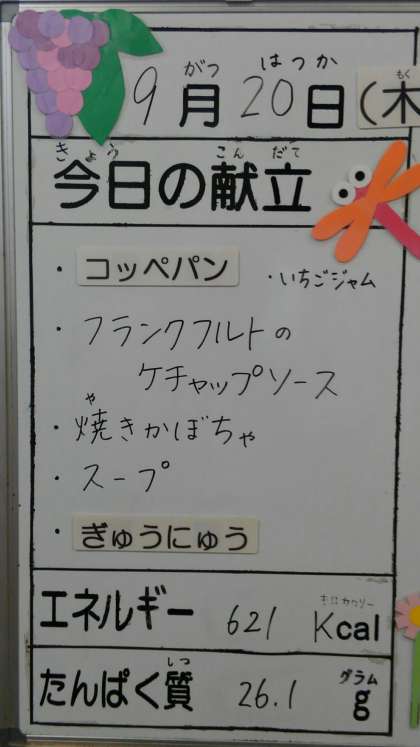 がつ はつか もく
9月20日(木
きょう こんだて
今日の献立
・コッペパン ・いちごジャム
・フランクフルトの
ケチャップソース
や
・焼きかぼちゃ
・スープ
・ぎゅうにゅう
キロカロリー
エネルギー 621 Kcal
しつ グラム
たんぱく質 26.1 g